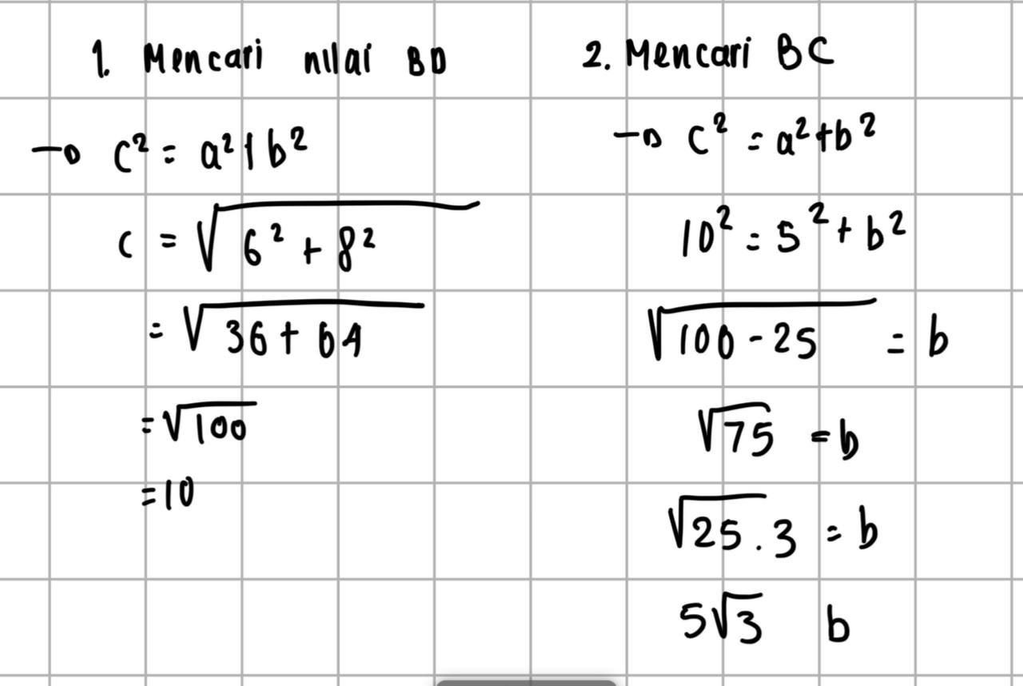 1. Mencari nilai BD
→ c² = a² + b²
c = √6² + 8²
= √36 + 64
= √100
= 10
2. Mencari BC
→ c² = a² + b²
10² = 5² + b²
√100 - 25 = b
√75 = b
√25 . 3 = b
5√3 b